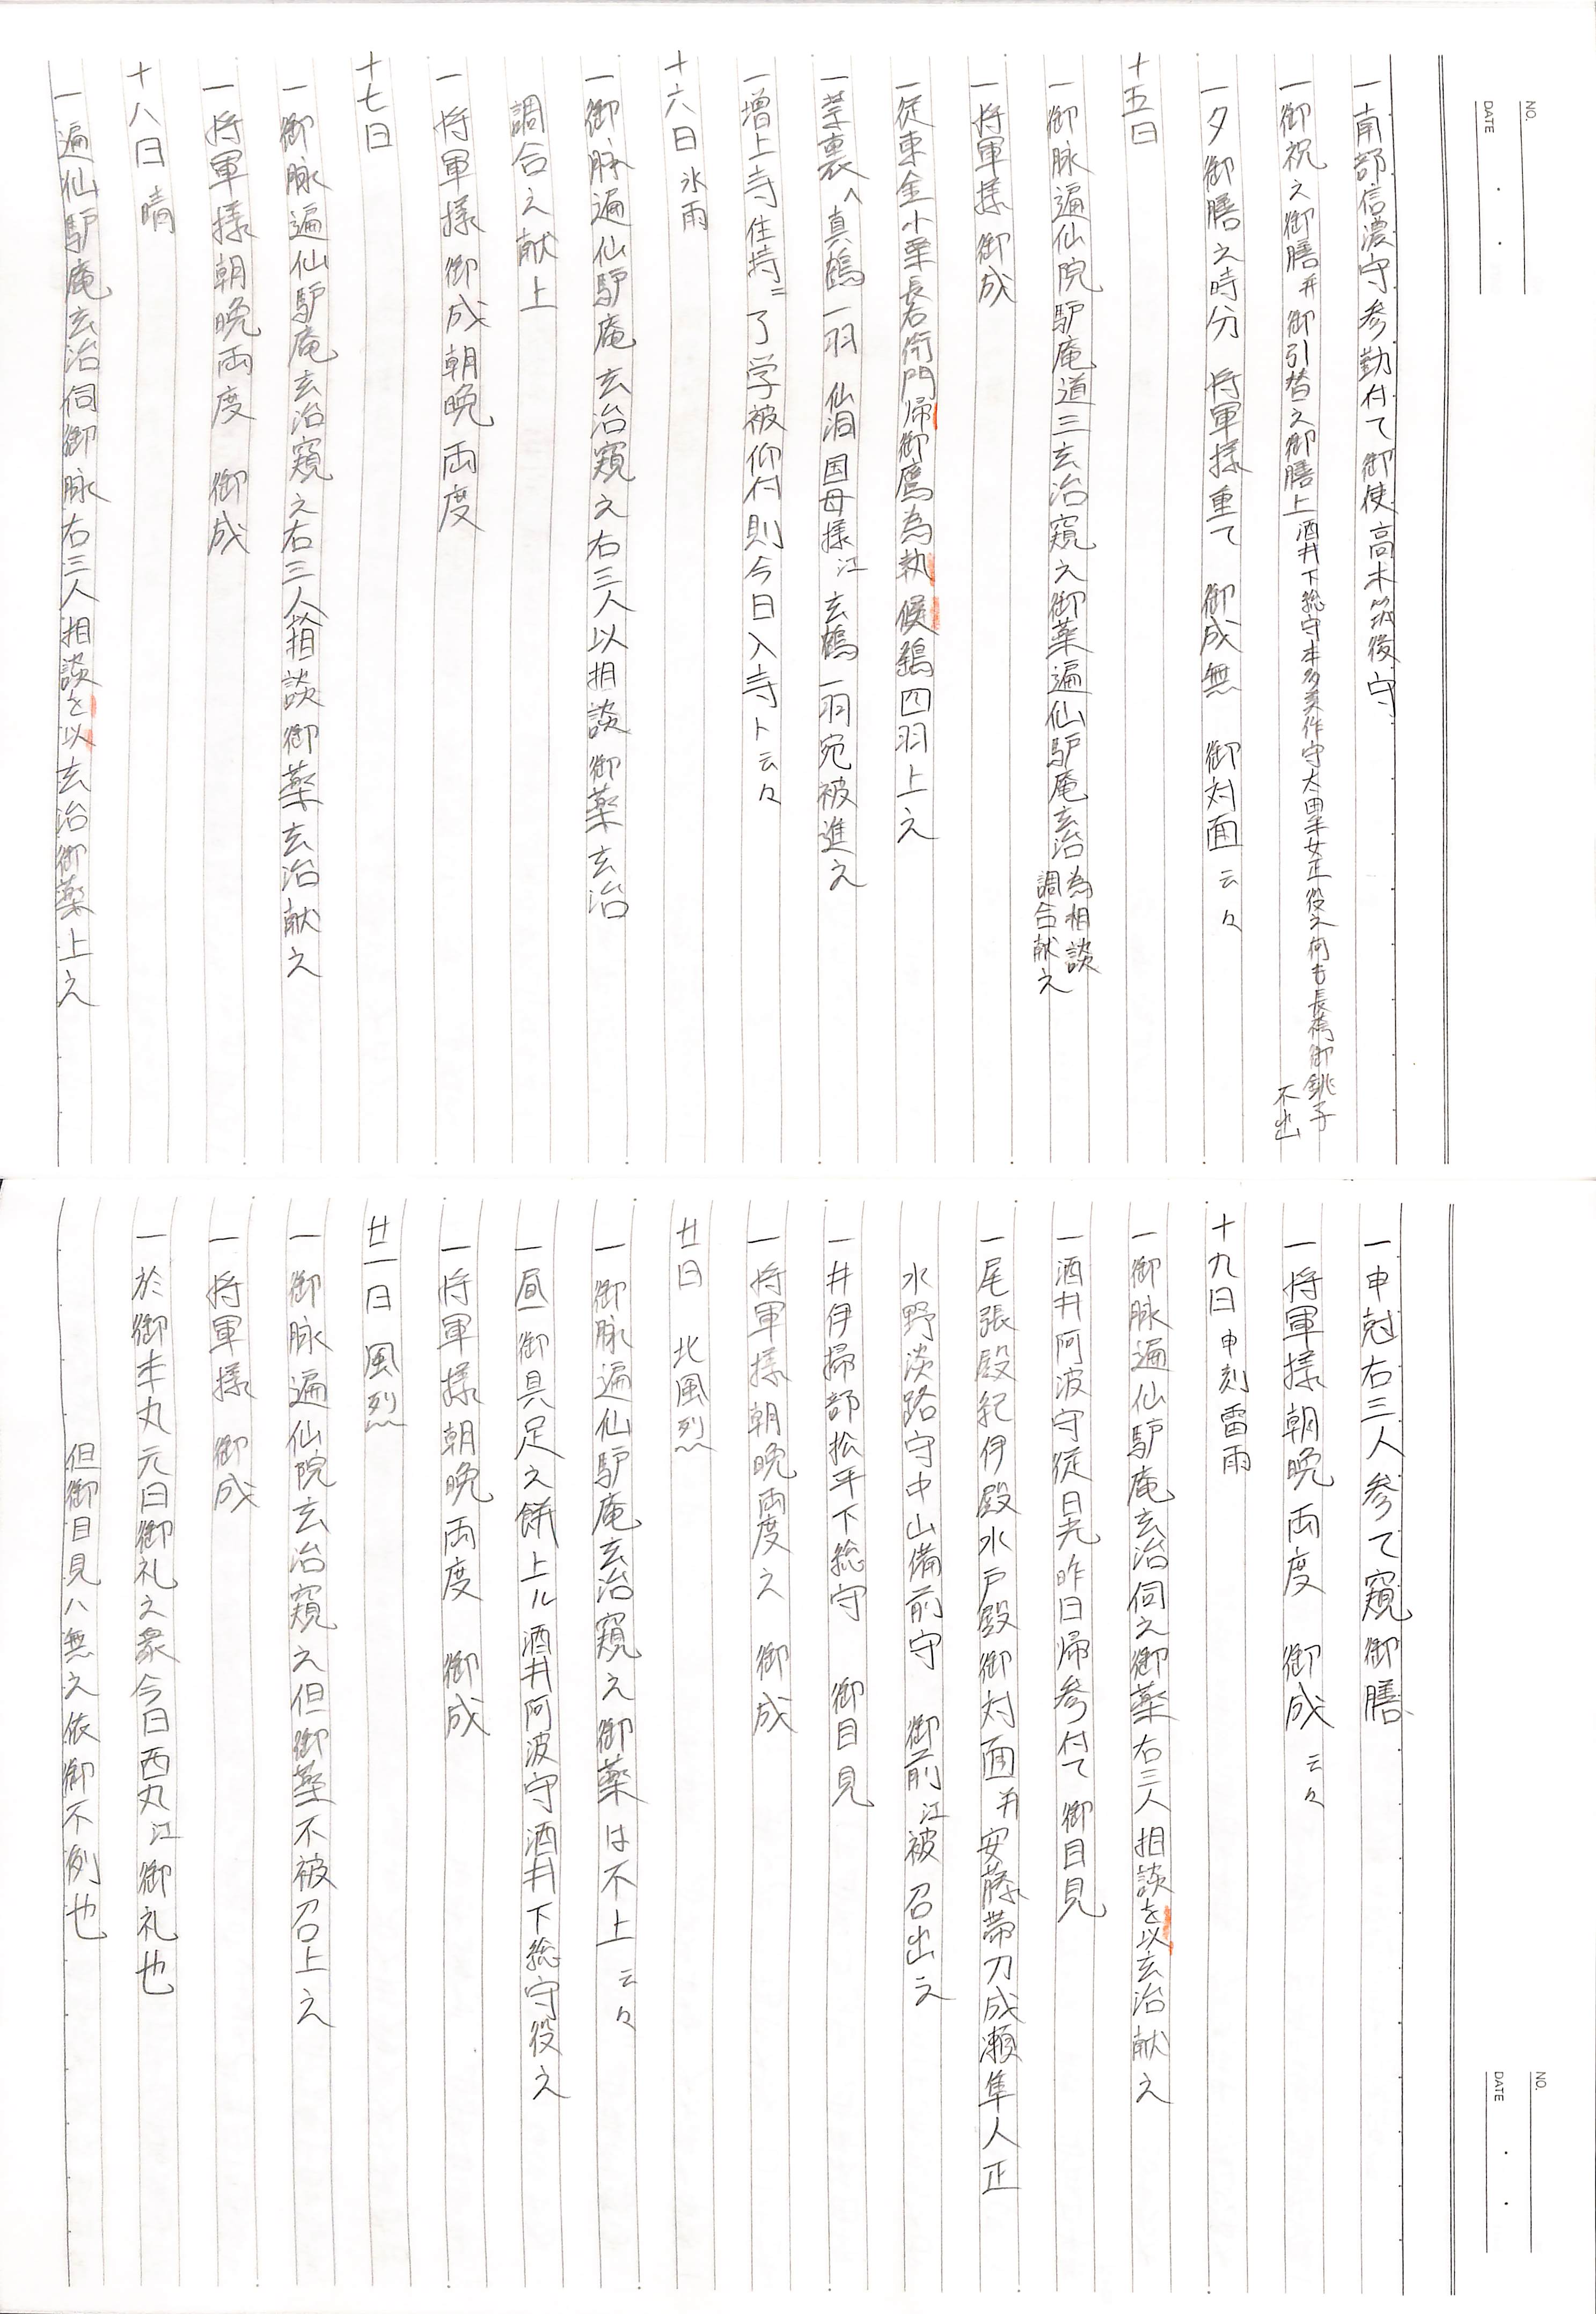 NO.
DATE
一南部信濃守参勤付て御使高木筑後守
一御祝之御膳并御引替之御膳上酒井下総守本多美作守太田采女正役之何も長袴御銚子
不出
一夕御膳之時分 将軍様重て 御成無 御対面云々
十五日
一御脉遍仙院驢庵道三玄治窺之御薬遍仙驢庵玄治為相談
調合献之
一将軍様 御成
一従東金小栗長右衛門帰御鷹為執候鶴四羽上之
一禁裏ヘ真鶴一羽 仙洞国母様江玄鶴一羽宛被進之
一増上寺住持ニ了学被仰付則今日入寺ト云々
十六日 氷雨
一御脉遍仙驢庵玄治窺之右三人以相談御薬玄治
調合之献上
一将軍様御成朝晩両度
十七日
一御脉遍仙驢庵玄治窺之右三人以相談御薬玄治献之
一将軍様朝晩両度 御成
十八日 晴
一遍仙驢庵玄治伺御脉右三人相談を以玄治御薬上之
NO.
DATE
一申尅右三人参て窺御膳
一将軍様朝晩両度 御成云々
十九日 申刻雷雨
一御脉遍仙驢庵玄治伺之御薬右三人相談を以玄治献之
一酒井阿波守従日光昨日帰参付て御目見
一尾張殿紀伊殿水戸殿御対面并安藤帯刀成瀬隼人正
水野淡路守中山備前守 御前江被召出之
一井伊掃部松平下総守 御目見
一将軍様朝晩両度之 御成
廿日 北風烈
一御脉遍仙驢庵玄治窺之御薬は不上云々
一昼御具足之餅上ル酒井阿波守酒井下総守役之
一将軍様朝晩両度 御成
廿一日 風烈
一御脉遍仙院玄治窺之但御薬不被召上之
一将軍様 御成
一於御本丸元日御礼之衆今日西丸江御礼也
但御目見ハ無之依御不例也